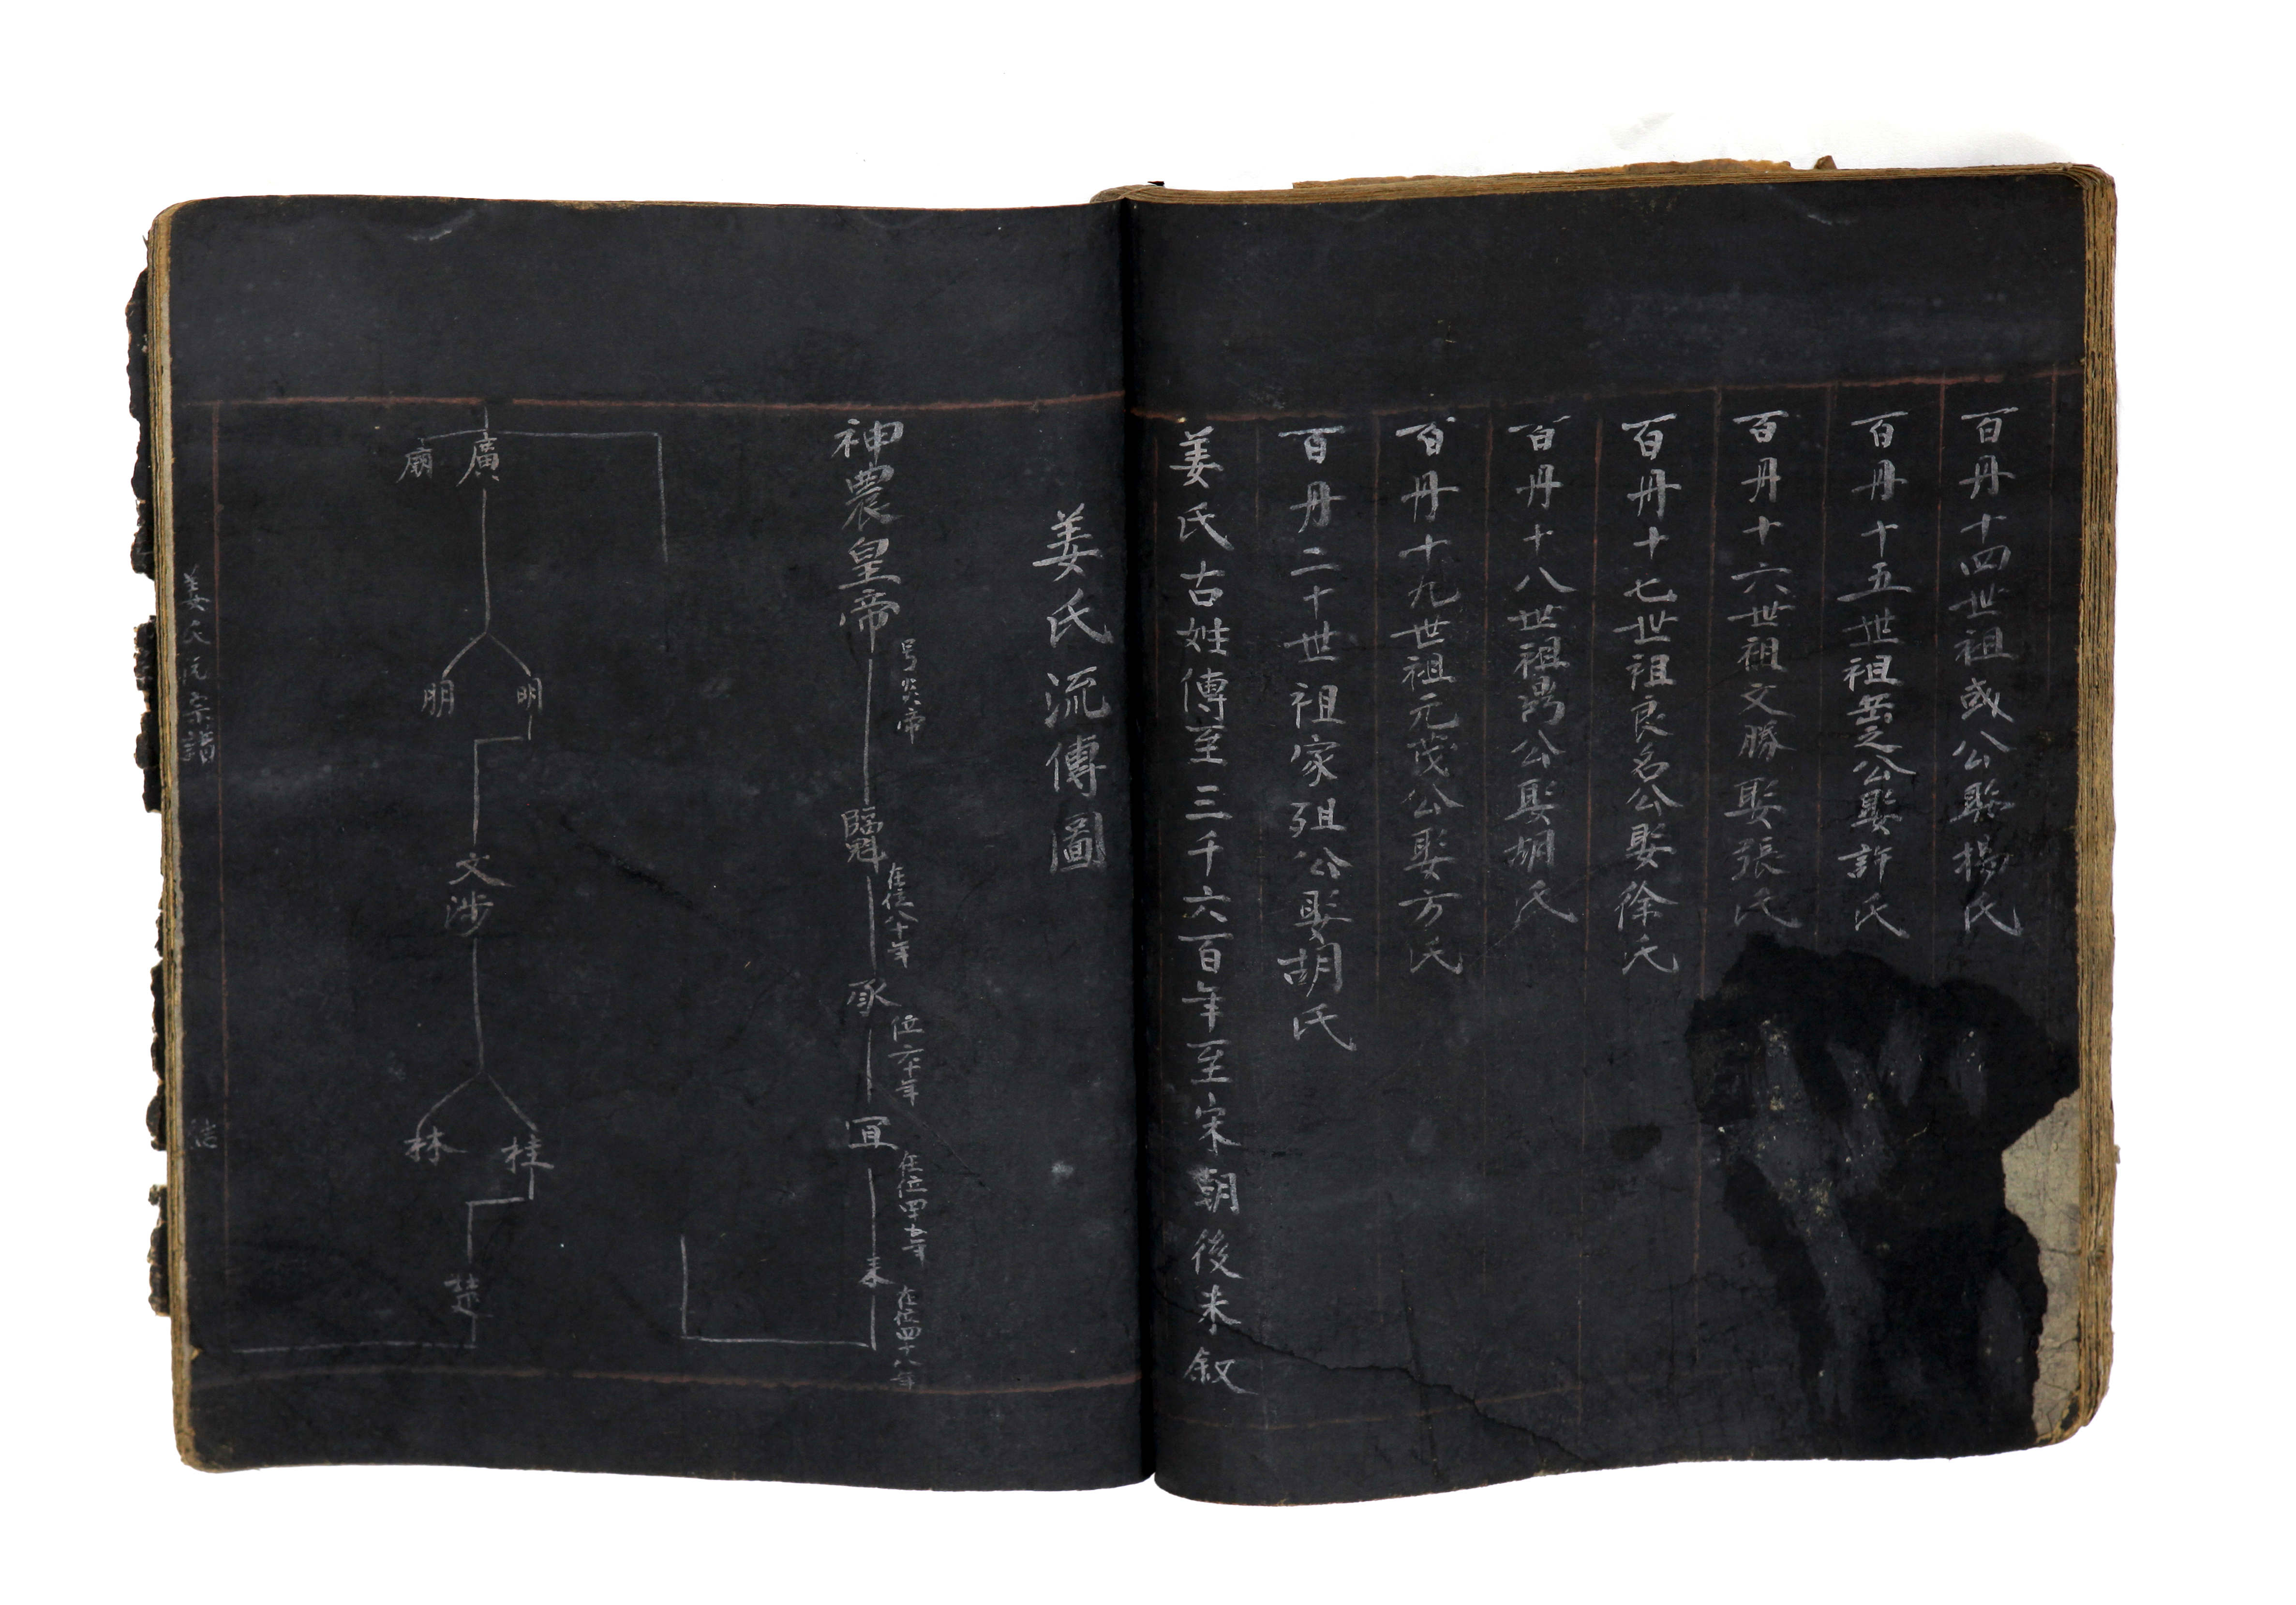 百丹十四世祖或公娶楊氏
百丹十五世祖岳之公娶許氏
百丹十六世祖文勝娶張氏
百丹十七世祖良名公娶徐氏
百丹十八世祖公娶胡氏
百丹十九世祖元茂公娶方氏
百丹二十世祖家公娶胡氏
姜氏古姓傳至三千六百年至宋朝後未叙
姜氏流傳圖
神農皇帝
号炎帝
臨魁
在位八十年
承
位六十年
宜
在位四十五年
来
在位四十八年
廣
廟
明
明
文涉
桂
林
楚
姜氏宗譜